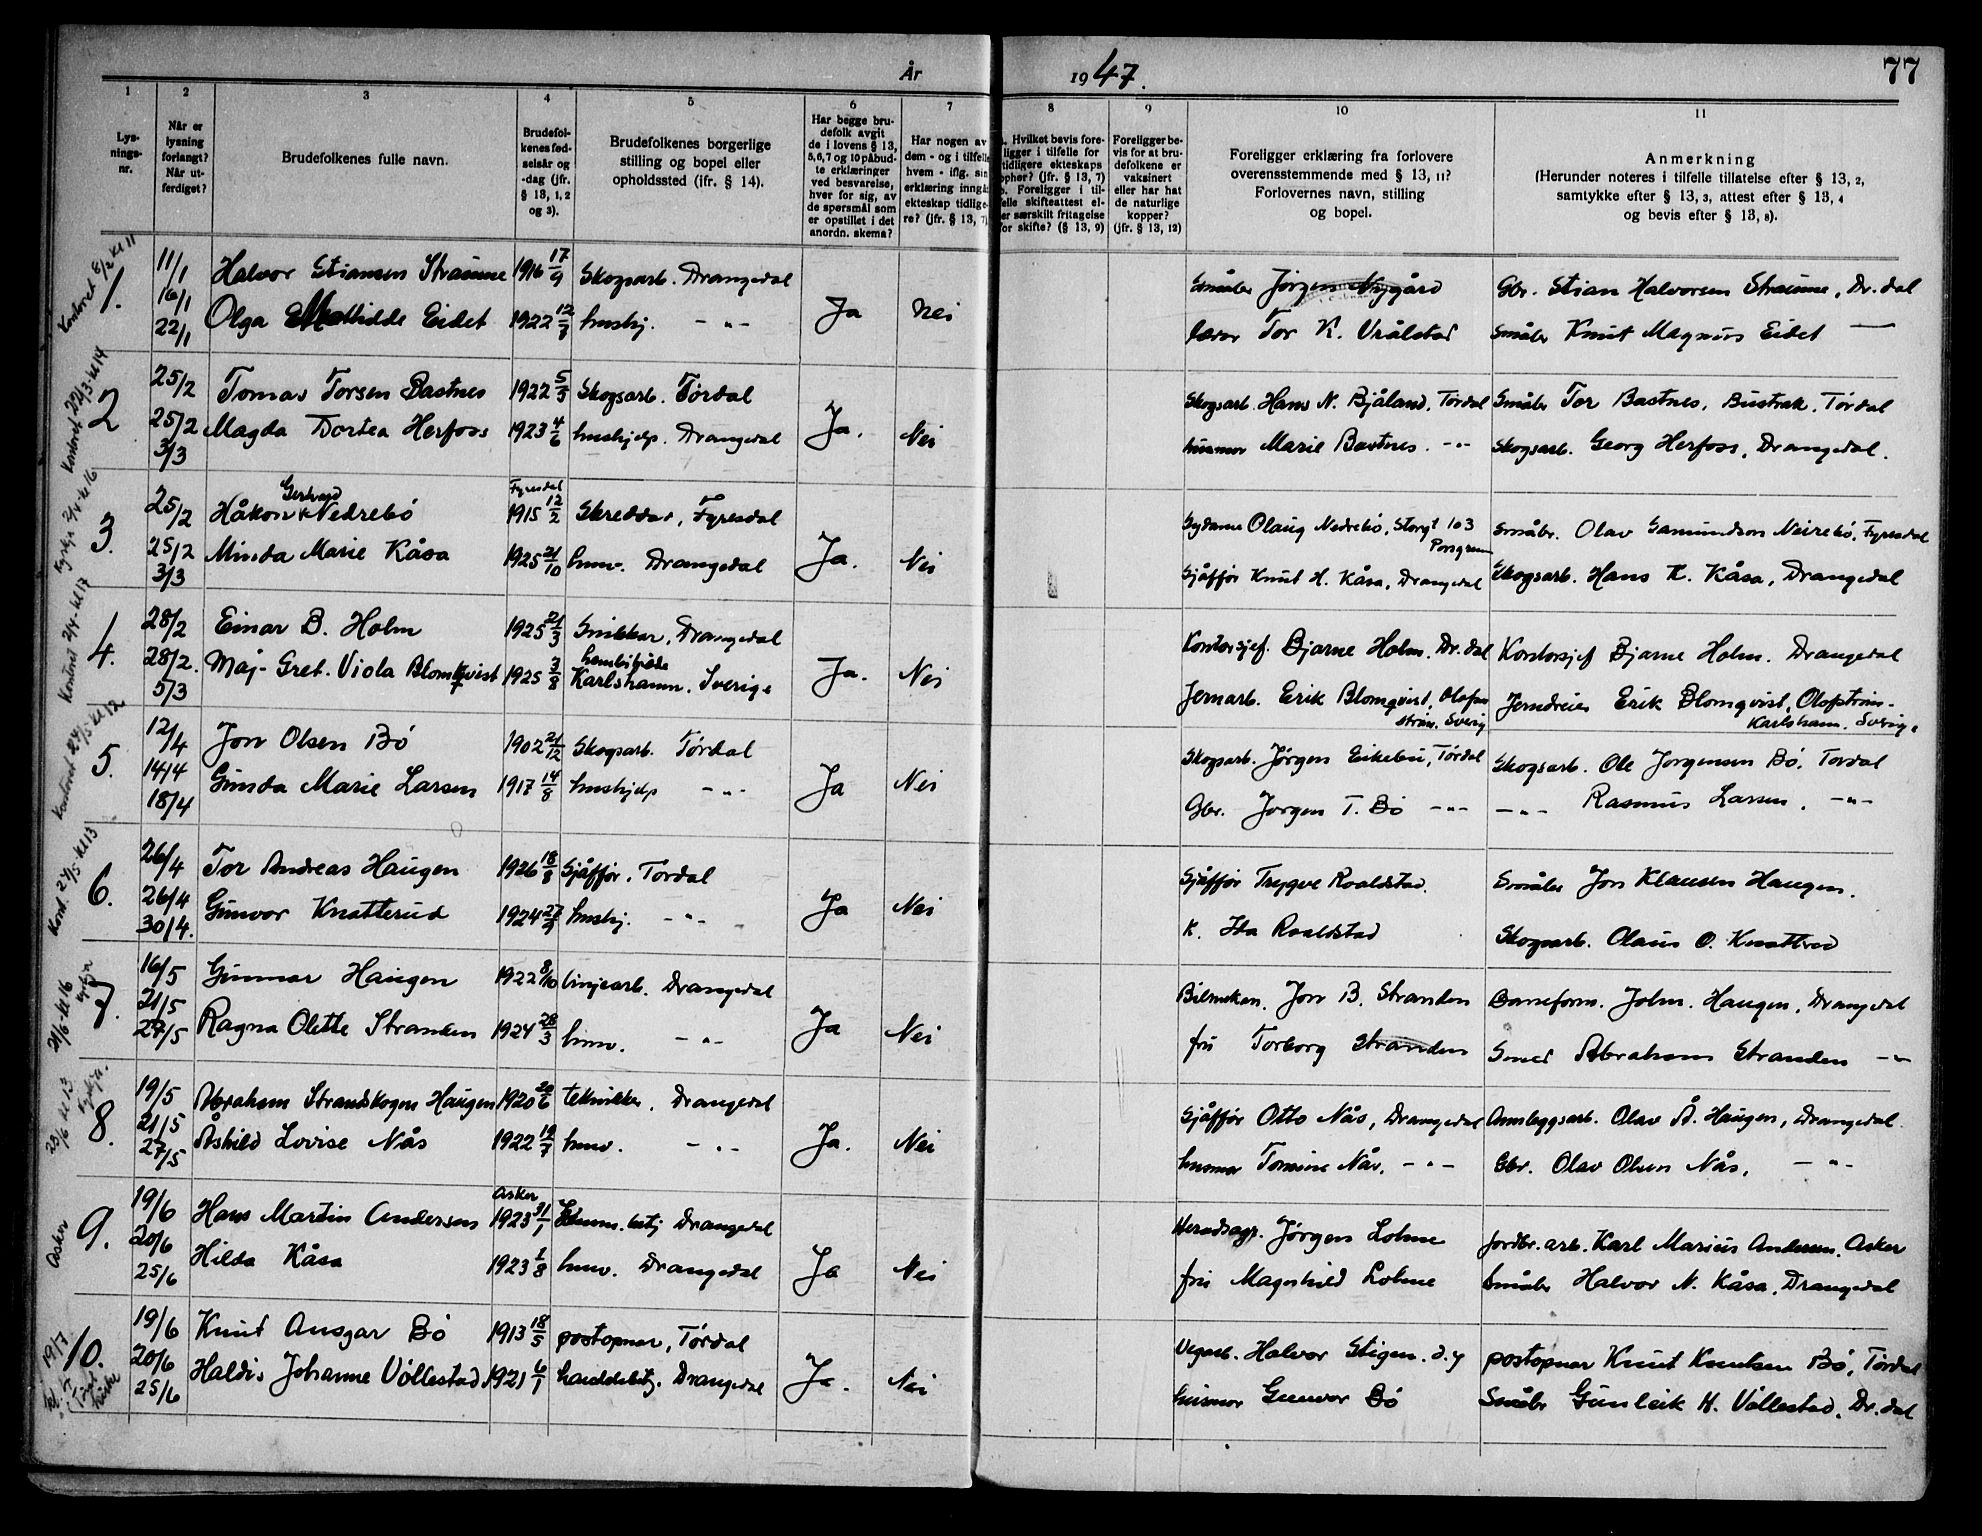 År 1947.
77
1 2 3 4 5 6 7 8 9 10 11
Lys-
nings-
nr.
Når er
lysning
forlangt?
Når ut-
ferdiget?
Brudefolkenes fulle navn.
Brudefol-
kenes fød-
selsår og
-dag (jfr.
§ 13, 1, 2
og 3).
Brudefolkenes borgerlige
stilling og bopel eller
opholdssted (jfr. § 14).
Har begge bru-
defolk avgit
de i lovens § 13,
5, 6, 7 og 10 påbud-
te erklæringer
ved besvarelse,
hver for sig, av
de spørsmål som
er opstillet i det
anordn. skema?
Har nogen av
dem - og i tilfelle
hvem - iflg. sin
erklæring inngå
ekteskap tidlige-
re? (jfr. § 13, 7)
Hvilket bevis fore-
ligger i tilfelle for
tidligere ekteskaps
ophør? (jfr. § 13, 7)
b. Foreligger i til-
felle skifteattest el-
ler særskilt fritagelse
for skifte? (§ 13, 9)
Foreligger be-
vis for at bru-
defolkene er
vaksinert
eller har hat
de naturlige
kopper?
(jfr. § 13, 12)
Foreligger erklæring fra forlovere
overensstemmende med § 13, 11?
Forlovernes navn, stilling
og bopel.
Anmerkning
(Herunder noteres i tilfelle tillatelse efter § 13, 2,
samtykke efter § 13, 3, attest efter § 13, 4
og bevis efter § 13, 8).
1. 11/1 Halvor Stiansen Straume 1916 17/9 Skogsarb. Drangedal Småbr Jørgen Nygård Gbr. Stian Halvorsen Straume, Dr.dal
16/1
22/1 Olga Mathilde Eidet 1922 12/7 hushj. -"- Ja Nei Tor K. Vrålstad Småbr Knut Magnus Eidet —
Kontoret 22/3-kl 14
2 25/2 Tomas Torsen Bastnes 1922 5/3 Skogsarb. Tørdal Skogsarb. Hans N. Bjåland, Tørdal Småbr Tor Bastnes, Bustrak, Tørdal
25/2 Magda Dortea Herfoss 1923 4/6 hushjelp. Drangedal Ja. Nei husmor Marie Bastnes. -"- Skogsarb. Georg Herfoss, Drangedal.
3/3
3. 25/2 Håkon Gerhard Nedrebø Fyresdal 1915 12/2 Skreddar, Fyresdal Sydame Olaug Nedrebø, Storgt 103 Porsgrunn Småbr. Olav Gamundson Neirebø, Fyresdal
25/2 Minda Marie Kåsa 1925 21/10 husv. Drangedal Ja. Nei Sjåffør Knut H. Kåsa, Drangedal Skogsarb. Hans K. Kåsa, Drangedal
3/3
Kontoret 2/4-kl 17
4. 28/2 Einar B. Holm 1925 21/3 Snikkar, Drangedal Kontorsjef. Bjarne Holm. Dr.dal Kontorsjef Bjarne Holm. Drangedal
28/2. Maj-Gret. Viola Blomkvist 1925 3/8 hembiträde Karlshamn. Sverige Ja. Nei Jernarb. Erik Blomqvist, Olofström, Sverig Erik Blomqvist, Olofström-Karlshamn. Sverige
5/3
5. 12/4 Jon Olsen Bø 1902 21/12 Skogsarb. Tørdal Skogsarb. Jørgen Eikebu, Tørdal Skogsarb. Ole Jørgensen Bø. Tørdal
14/4 Gunda Marie Larsen 1917 14/8 hushjelp -"- Ja Nei Gbr. Jørgen T. Bø -"- -"- Rasmus Larsen. -"-
18/4
6. 26/4 Tor Andreas Haugen 1926 18/8 Sjåffør. Tørdal Sjåffør Trygve Roaldstad. Småbr Jon Klausen Haugen.
26/4 Gunvor Knatterud 1924 27/9 hushj. -"- Ja Nei K. Ida Roaldstad Skogsarb. Olaus O. Knatterud
30/4.
21/6-kl 16
7. 16/5 Gunnar Haugen 1922 8/10 linjearb. Drangedal Jon B. Stranden Baneform. John. Haugen, Drangedal
21/5 Ragna Olette Stranden 1924 28/3 husv. -"- Ja Nei fru Torborg Stranden Smed Abraham Stranden -"-
27/5
8. 19/5 Abraham Strandskogen Haugen 1920 20/6 tekniker. Drangedal Sjåffør Otto Nås, Drangedal Annleggsarb. Olav A. Haugen, Drangedal.
21/5 Åshild Lovise Nås 1922 19/7 husv. -"- Ja. Nei husmor Tomine Nås. -"- Gbr. Olav Olsen Nås, -"-
27/5
Asker 9. 19/6 Hans Martin Andersen Asker 1923 31/1 Drangedal Heradsagr. Jørgen Lohne jordbr.arb. Karl Marius Andersen. Asker
20/6 Hilda Kåsa 1923 1/8 husv. Drangedal Ja Nei fru Magnhild Lohne Småbr Halvor N. Kåsa, Drangedal
25/6
19/7
10. 19/6 Knut Ansgar Bø 1913 18/5 postopnar, Tørdal Vegarb. Halvor Stigen. d.y postopnar Knut Knutsen Bø, Tørdal
20/6 Haldis Johanne Vøllestad 1921 6/1 handelsbetj. Drangedal Ja. Nei husmor Gunvor Bø Småbr Gunleik H. Vøllestad, Dr.dal
25/6